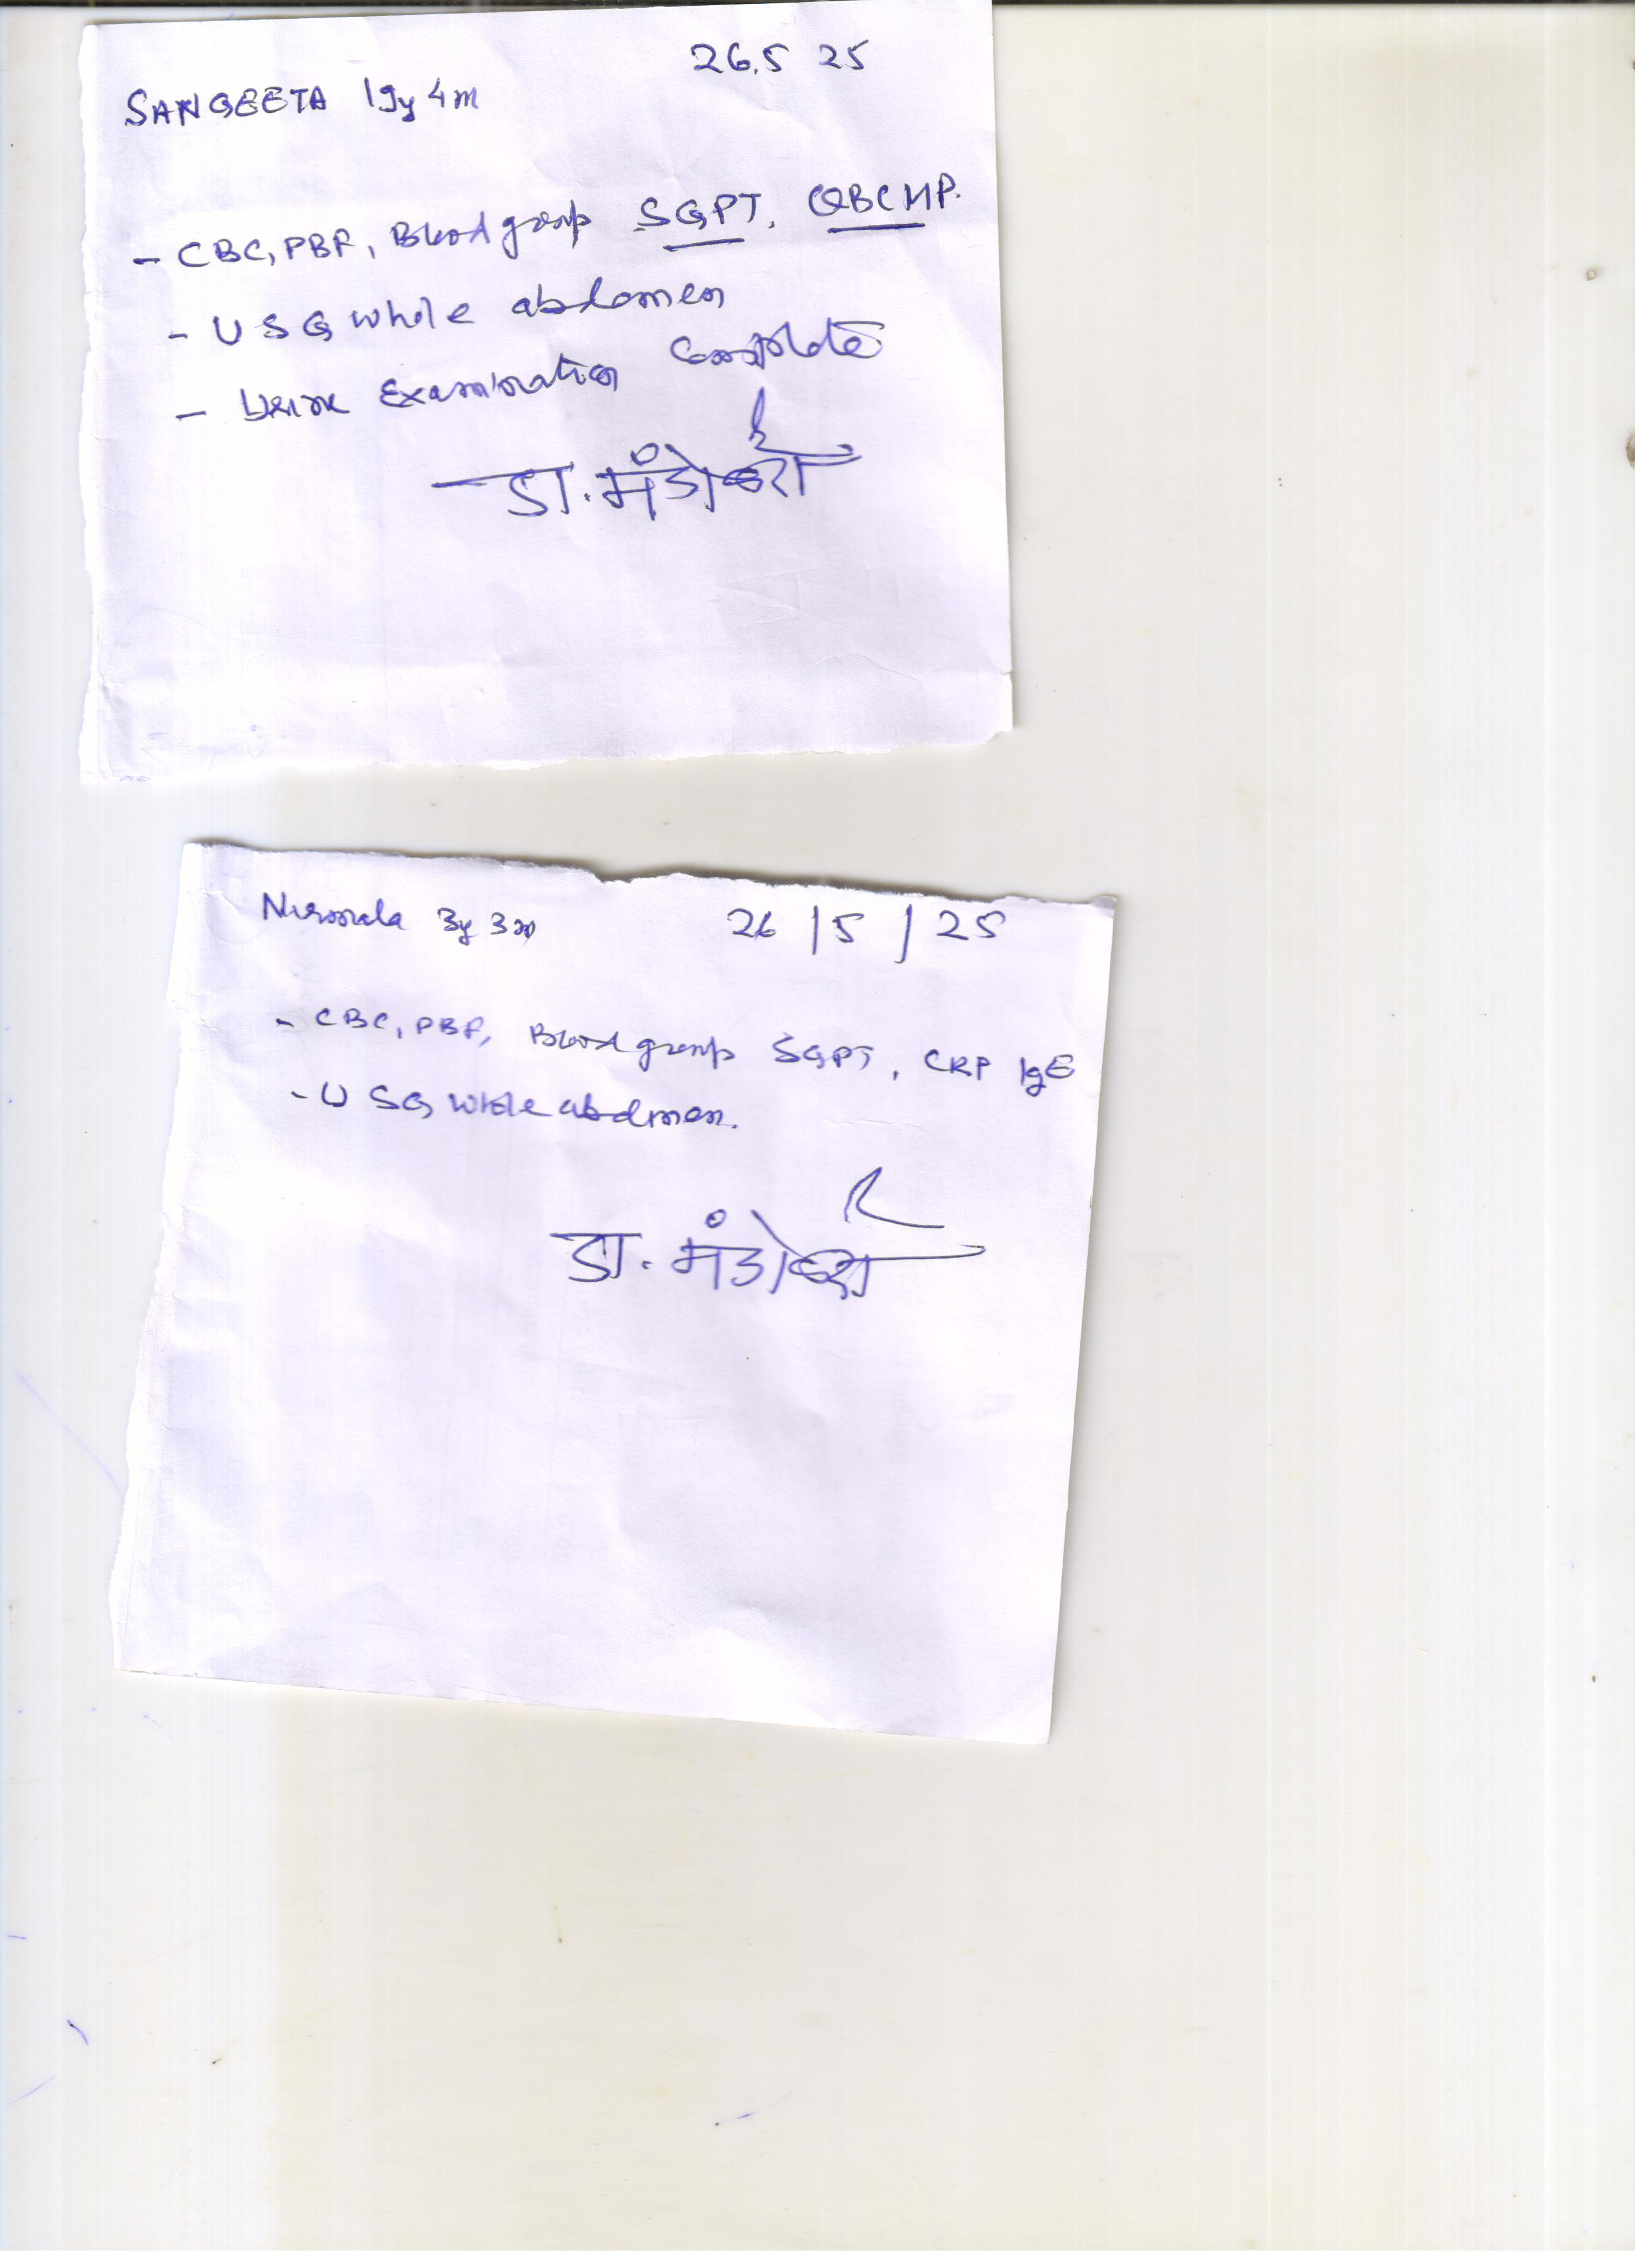 26.5 25
SANGEETA 19y 4m
- CBC, PBF, Blood group SGPT. QBCMP.
- USG whole abdomen
- Urine Examination Complete
डा.
Nirmala 3y 3m 26/5/25
- CBC, PBF, Blood group SGPT, CRP IgE
- USG whole abdomen.
डा.